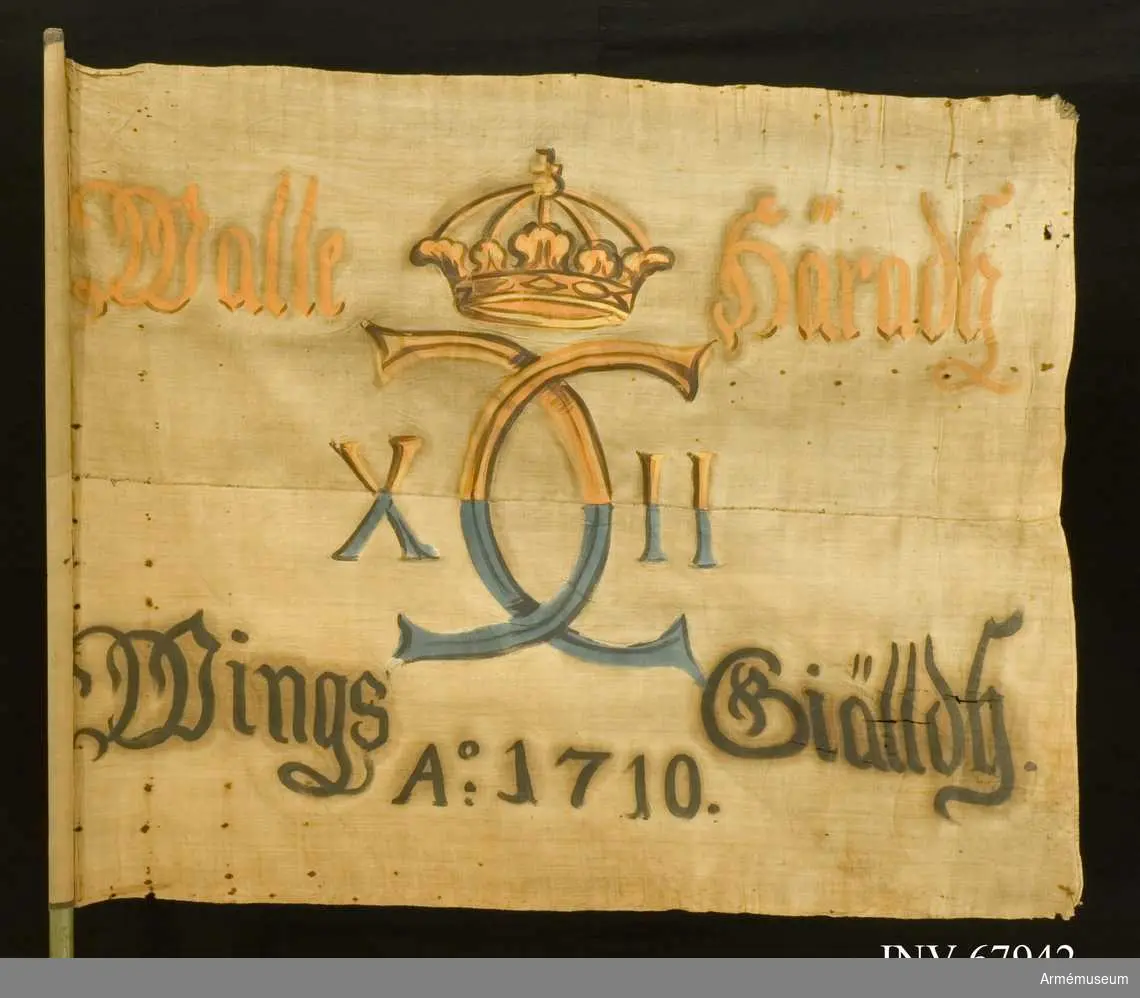 Walle Häradh
X CC II
Wings Giälldh.
Ao: 1710.
INV 67942
Armémuseum